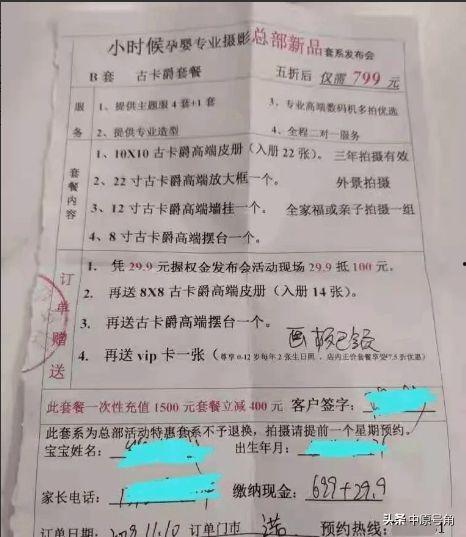 小时候孕婴专业摄影总部新品套系发布会
B 套 古卡爵套餐 五折后 仅需 799 元
服务
1、提供主题服 4 套+1 套 3、专业高端数码机多拍优选
2、提供专业造型 4、全程二对一服务
套餐内容
1、10X10 古卡爵高端皮册（入册 22 张）。 三年拍摄有效
2、22 寸古卡爵高端放大框一个。 外景拍摄
3、12 寸古卡爵高端墙挂一个。 全家福或亲子拍摄一组
4、8 寸古卡爵高端摆台一个。
订单赠送
1. 凭 29.9 元握权金发布会活动现场 29.9 抵 100 元。
2. 再送 8X8 古卡爵高端皮册（入册 14 张）。
3. 再送古卡爵高端摆台一个。
4. 再送 vip 卡一张（尊享 0-12 岁每年 2 张生日照，店内正价套餐享受 7.5 折优惠）
此套餐一次性充值 1500 元套餐立减 400 元 客户签字：
此套系为总部活动特惠套系不予退换，拍摄请提前一个星期预约。
宝宝姓名： 出生年月：
家长电话： 缴纳现金：699+29.9
订单日期： 订单门市 诺 预约热线：
头条 @中原号角